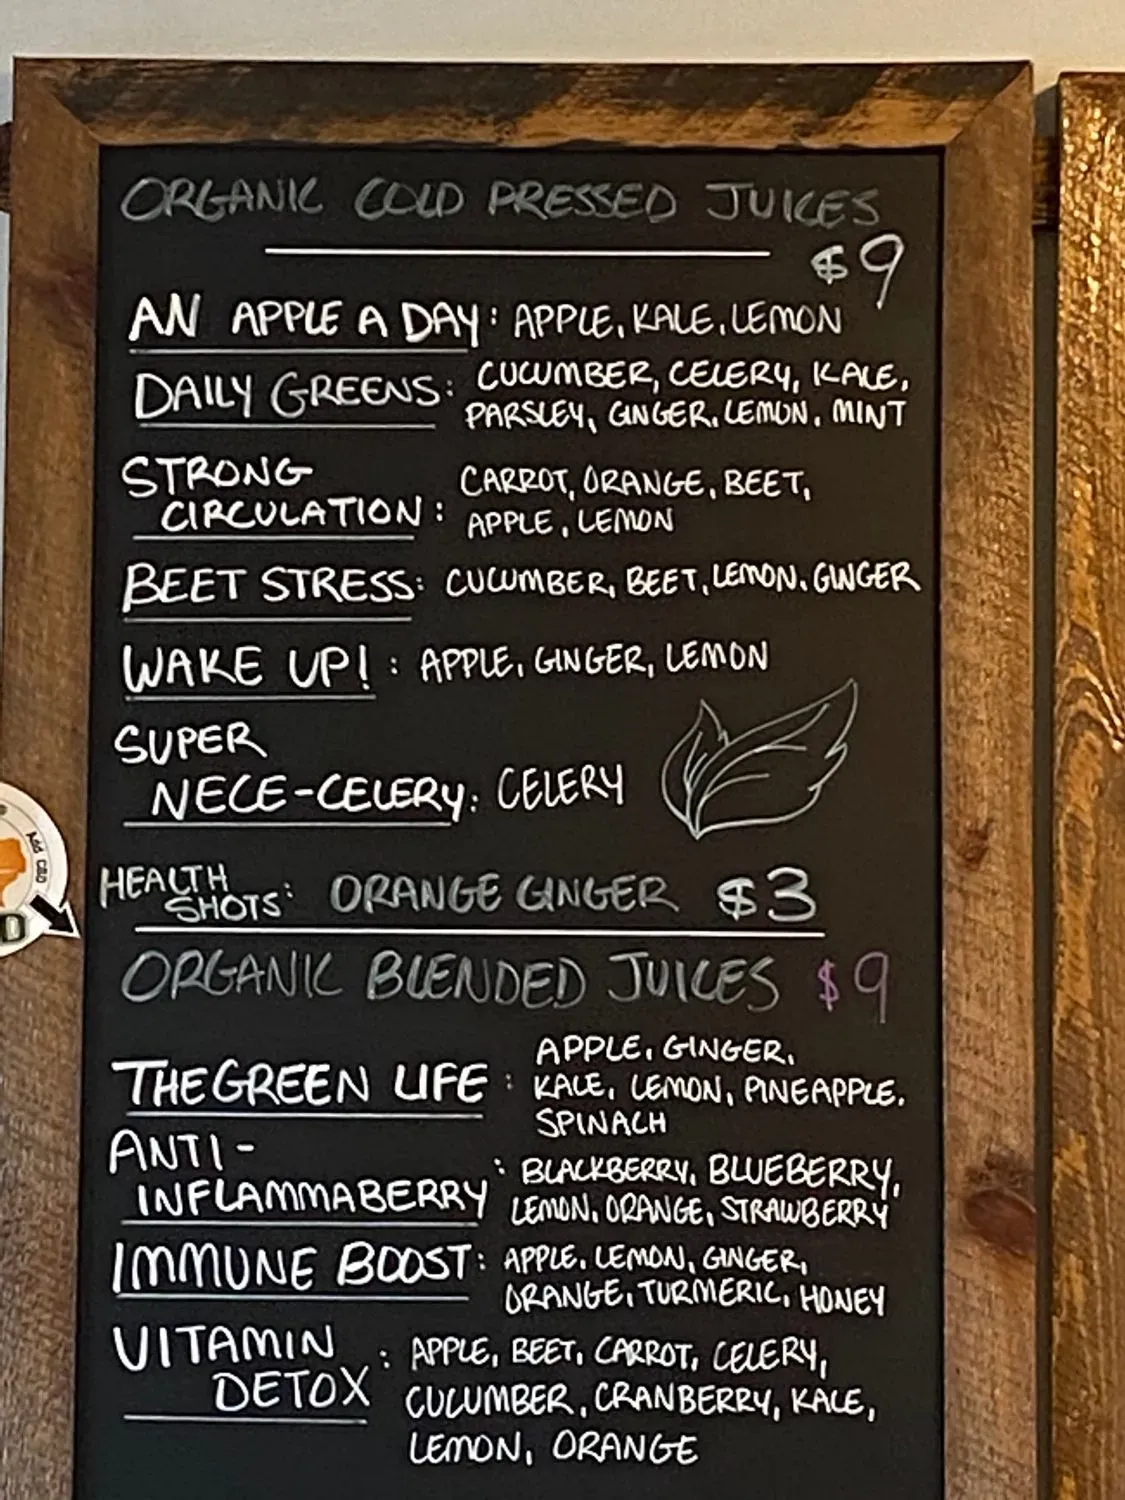 ORGANIC COLD PRESSED JUICES
$9
AN APPLE A DAY: APPLE, KALE, LEMON
DAILY GREENS: CUCUMBER, CELERY, KALE,
PARSLEY, GINGER, LEMON, MINT
STRONG
CIRCULATION: CARROT, ORANGE, BEET,
APPLE, LEMON
BEET STRESS: CUCUMBER, BEET, LEMON, GINGER
WAKE UP!: APPLE, GINGER, LEMON
SUPER
NECE-CELERY: CELERY
HEALTH
SHOTS: ORANGE GINGER $3
ORGANIC BLENDED JUICES $9
THE GREEN LIFE: APPLE, GINGER,
KALE, LEMON, PINEAPPLE,
SPINACH
ANTI-
INFLAMMABERRY: BLACKBERRY, BLUEBERRY,
LEMON, ORANGE, STRAWBERRY
IMMUNE BOOST: APPLE, LEMON, GINGER,
ORANGE, TURMERIC, HONEY
VITAMIN
DETOX: APPLE, BEET, CARROT, CELERY,
CUCUMBER, CRANBERRY, KALE,
LEMON, ORANGE
Add CBD